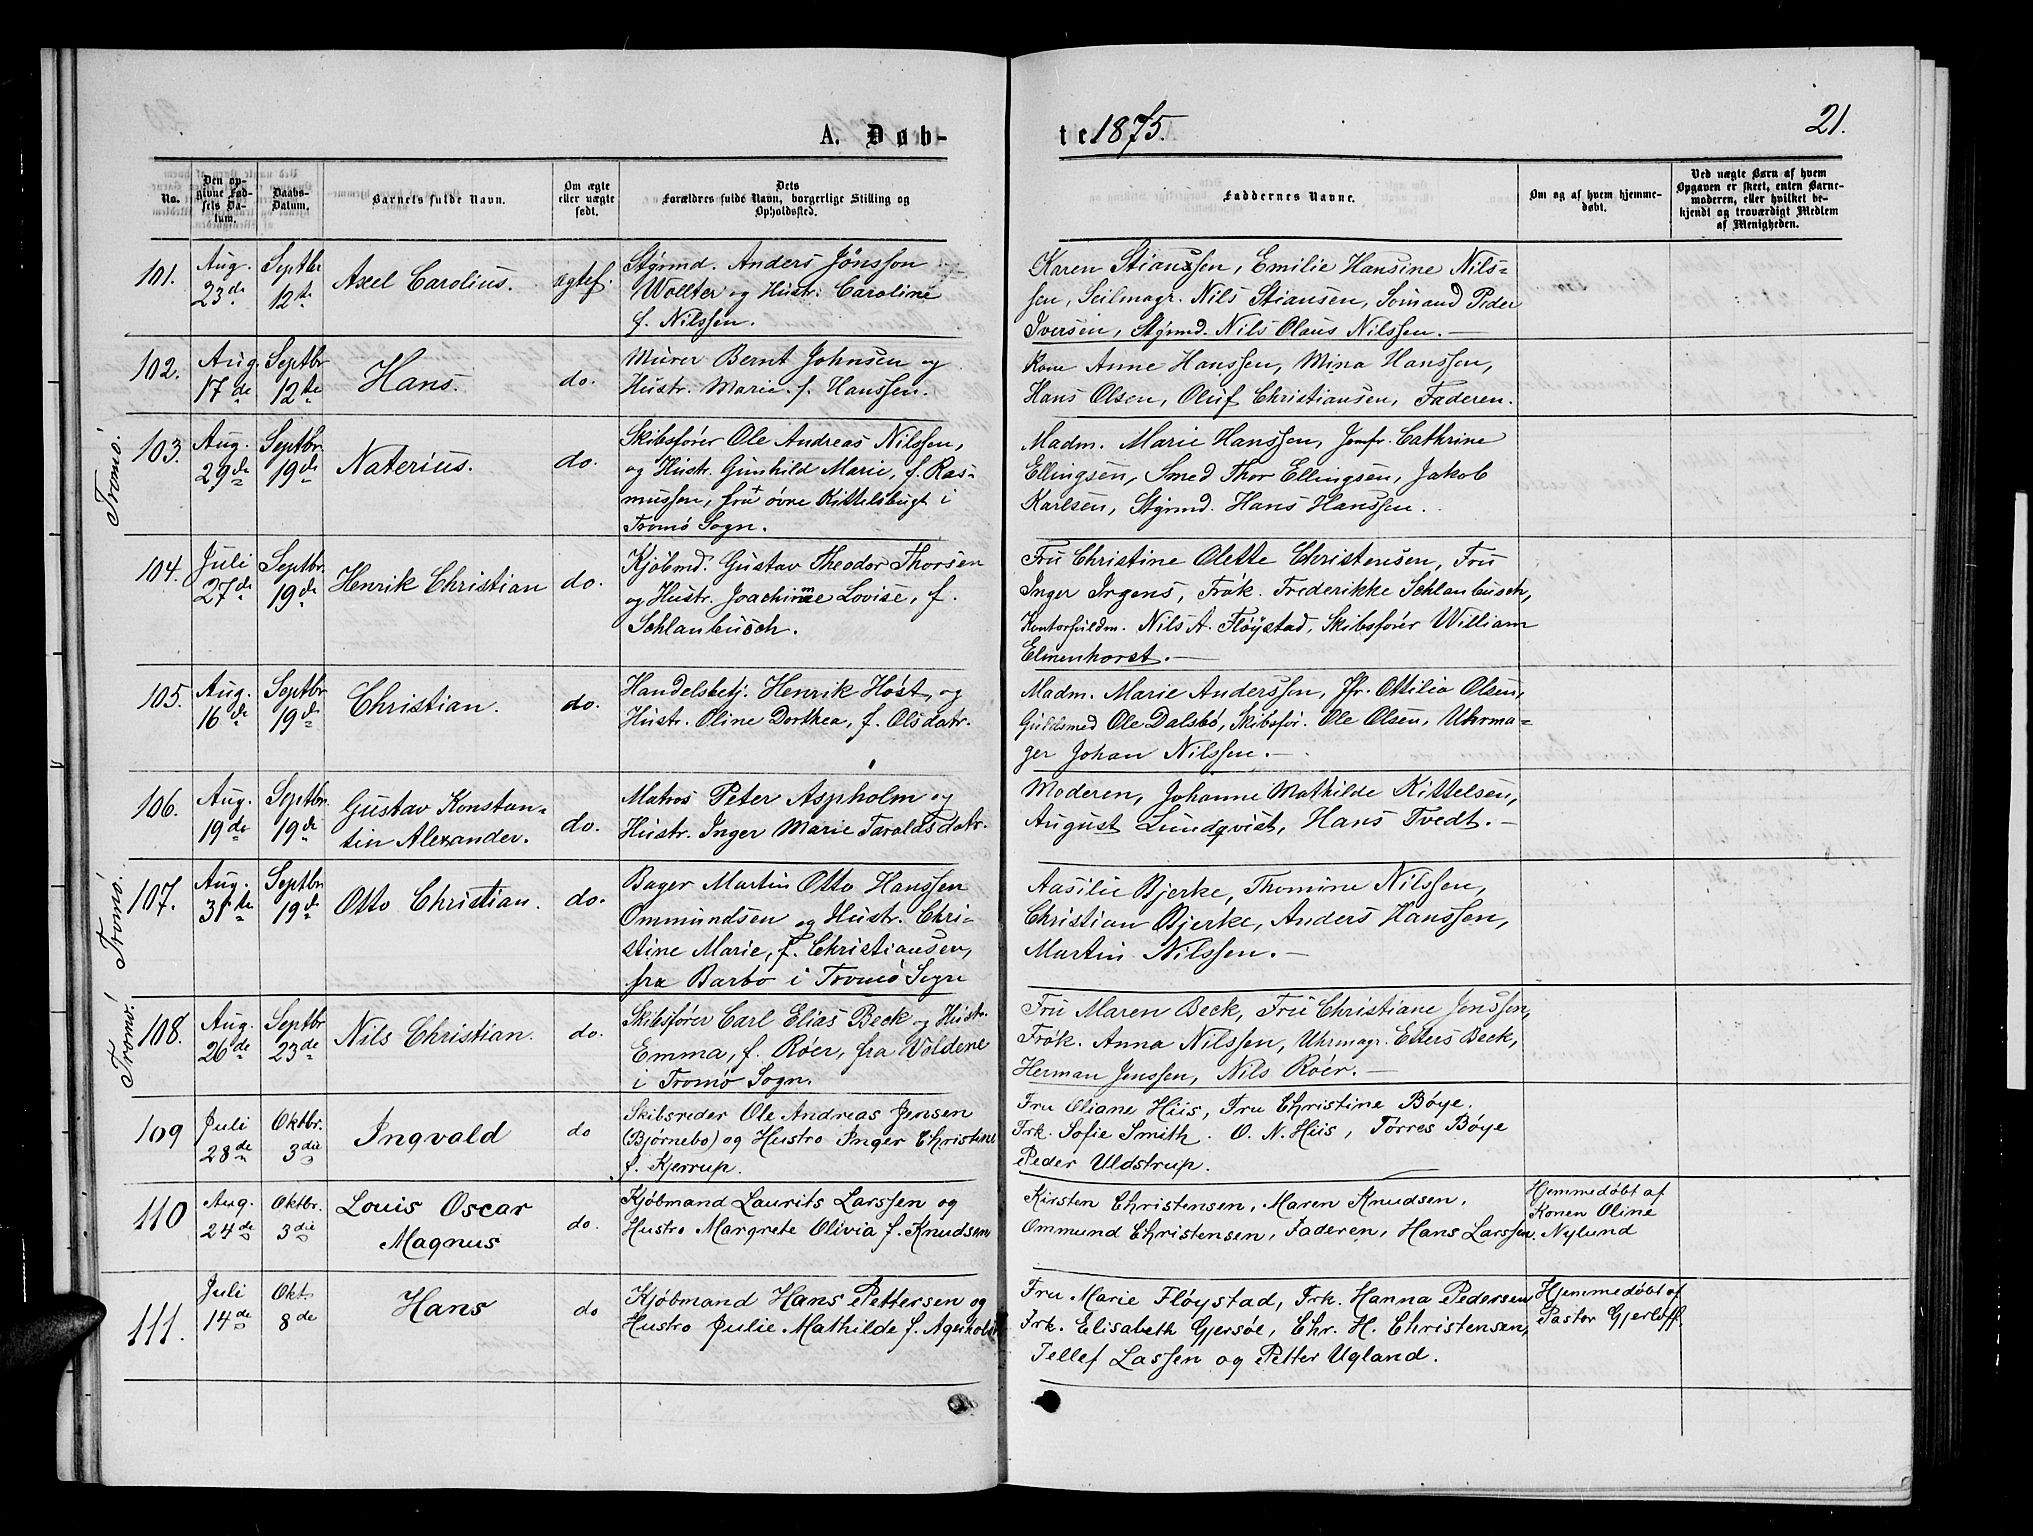 A. Døb-
te 1875.
21.
No.
Den op-
givne Fød-
sels Da-
tum.
Daabs-
Datum.
Barnets fulde Navn.
Om ægte
eller uægte
født.
Dets
Forældres fulde Navn, borgerlige Stilling og
Opholdssted.
Faddernes Navne.
Om og af hvem hjemme-
døbt.
Ved uægte Børn af hvem
Opgaven er skeet, enten Barne-
moderen, eller hvilket be-
kjendt og troværdigt Medlem
af Menigheden.
101.
Aug.
23de
Septbr
12te
Axel Carolius.
ægtef.
Styrmd. Anders Jönsson
Wollter og Hustr: Caroline
f. Nilssen.
Karen Stianssen, Emilie Hansine Nils-
sen, Seilmagr. Nils Stiansen, Sömand Peder
Iversen, Styrmd. Nils Olaus Nilssen. —
102.
Aug.
17de
Septbr
12te
Hans.
do.
Murer Bernt Johnsen og
Hustr. Marie f. Hanssen.
Kone Anne Hanssen, Mina Hanssen,
Hans Olsen, Oluf Christiansen, Faderen.
Tromö.
103.
Aug.
29de
Septbr.
19de
Naterius.
do.
Skibsfører Ole Andreas Nilssen,
og Hustr. Gunhild Marie, f. Ras-
mussen, fra övre Kittelsbugt i
Tromö Sogn.
Madm. Marie Hanssen, Jomfr. Cathrine
Ellingsen, Smed Thor Ellingsen, Jakob
Karlsen, Styrmd. Hans Hanssen.
104.
Juli
27de
Septbr.
19de
Henrik Christian
do.
Kjöbmd. Gustav Theodor Thorsen
og Hustr. Joachimine Lovise, f.
Schlanbusch.
Fru Christine Olette Christensen, Fru
Inger Irgens, Frök. Frederikke Schlanbusch,
Kontorfuldm. Nils A. Flöystad, Skibsförer William
Elmenhorst. —
105.
Aug.
16de
Septbr
19de
Christian.
do.
Handelsbetj. Henrik Höst og
Hustr. Oline Dorthea, f. Olsdatr.
Madm. Marie Anderssen, Jfr. Ottilia Olsen,
Guldsmed Ole Dalsbö, Skibsför. Ole Olsen, Uhrma-
ger Johan Nilssen. —
106.
Aug.
19de
Septbr.
19de
Gustav Konstan-
tin Alexander.
do.
Matros Peter Aspholm og
Hustr. Inger Marie Taraldsdatr.
Moderen, Johanne Mathilde Kittelsen,
August Lundqvist, Hans Tvedt. —
Tromö.
107.
Aug.
31te
Septbr
19de
Otto Christian.
do.
Bager Martin Otto Hanssen
Ommundsen og Hustr. Chri-
stine Marie, f. Christiansen,
fra Barbo i Tromö Sogn
Aasilie Bjerke, Thomine Nilssen,
Christian Bjerke, Anders Hanssen,
Martin Nilssen. —
Tromö.
108.
Aug.
26de
Septbr
23de
Nils Christian.
do.
Skibsfører Carl Elias Beck og Hustr.
Emma, f. Röer, fra Voldene
i Tromö Sogn.
Fru Maren Beck, Fru Christiane Jenssen,
Frök. Anna Nilssen, Uhrmagr. Esters Beck,
Herman Jenssen, Nils Roër. —
109
Juli
28de
Oktbr.
3die
Ingvald
do
Skibsreder Ole Andreas Jensen
(Bjørnebo) og Hustro Inger Christine
f. Kjerrup.
Fru Oliane Hiis, Fru Christine Bøye.
Frk. Sofie Smith. O. N. Hiis, Tørres Bøye
Peder Uldstrup.
110
Aug.
24de
Oktbr.
3die
Louis Oscar
Magnus
do.
Kjøbmand Laurits Larssen og
Hustro Margrete Olivia f. Knudsen
Kirsten Christensen, Maren Knudsen,
Ommund Christensen, Faderen, Hans Larssen.
Hjemmedøbt af
Konen Oline
Nylund
111.
Juli
14de
Okt
8de
Hans
do
Kjøbmand Hans Pettersen og
Hustro Julie Mathilde f. Agerholt
Fru Marie Fløystad, Frk. Hanna Pedersen
Frk. Elisabeth Gjersøe, Chr. H. Christensen,
Tellef Lassen og Petter Ugland.
Hjemmedøbt af
Pastor Gjerløff